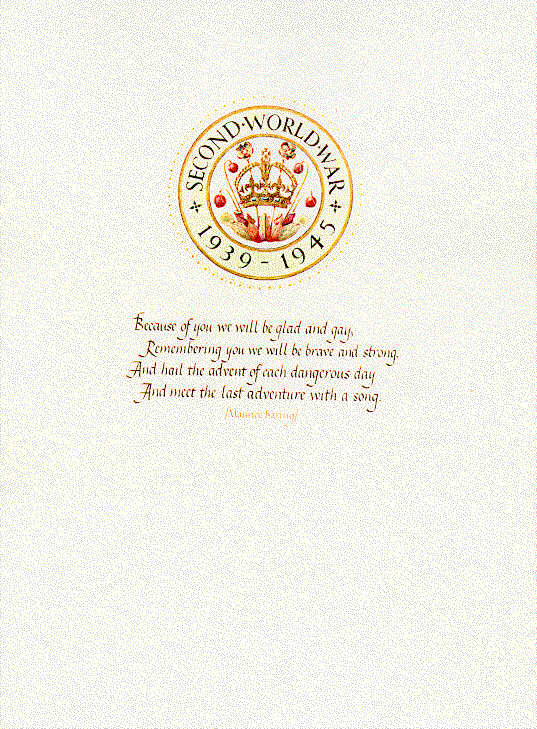 SECOND·WORLD·WAR
1939-1945
Because of you we will be glad and gay,
Remembering you we will be brave and strong,
And hail the advent of each dangerous day
And meet the last adventure with a song.
[Maurice Baring]